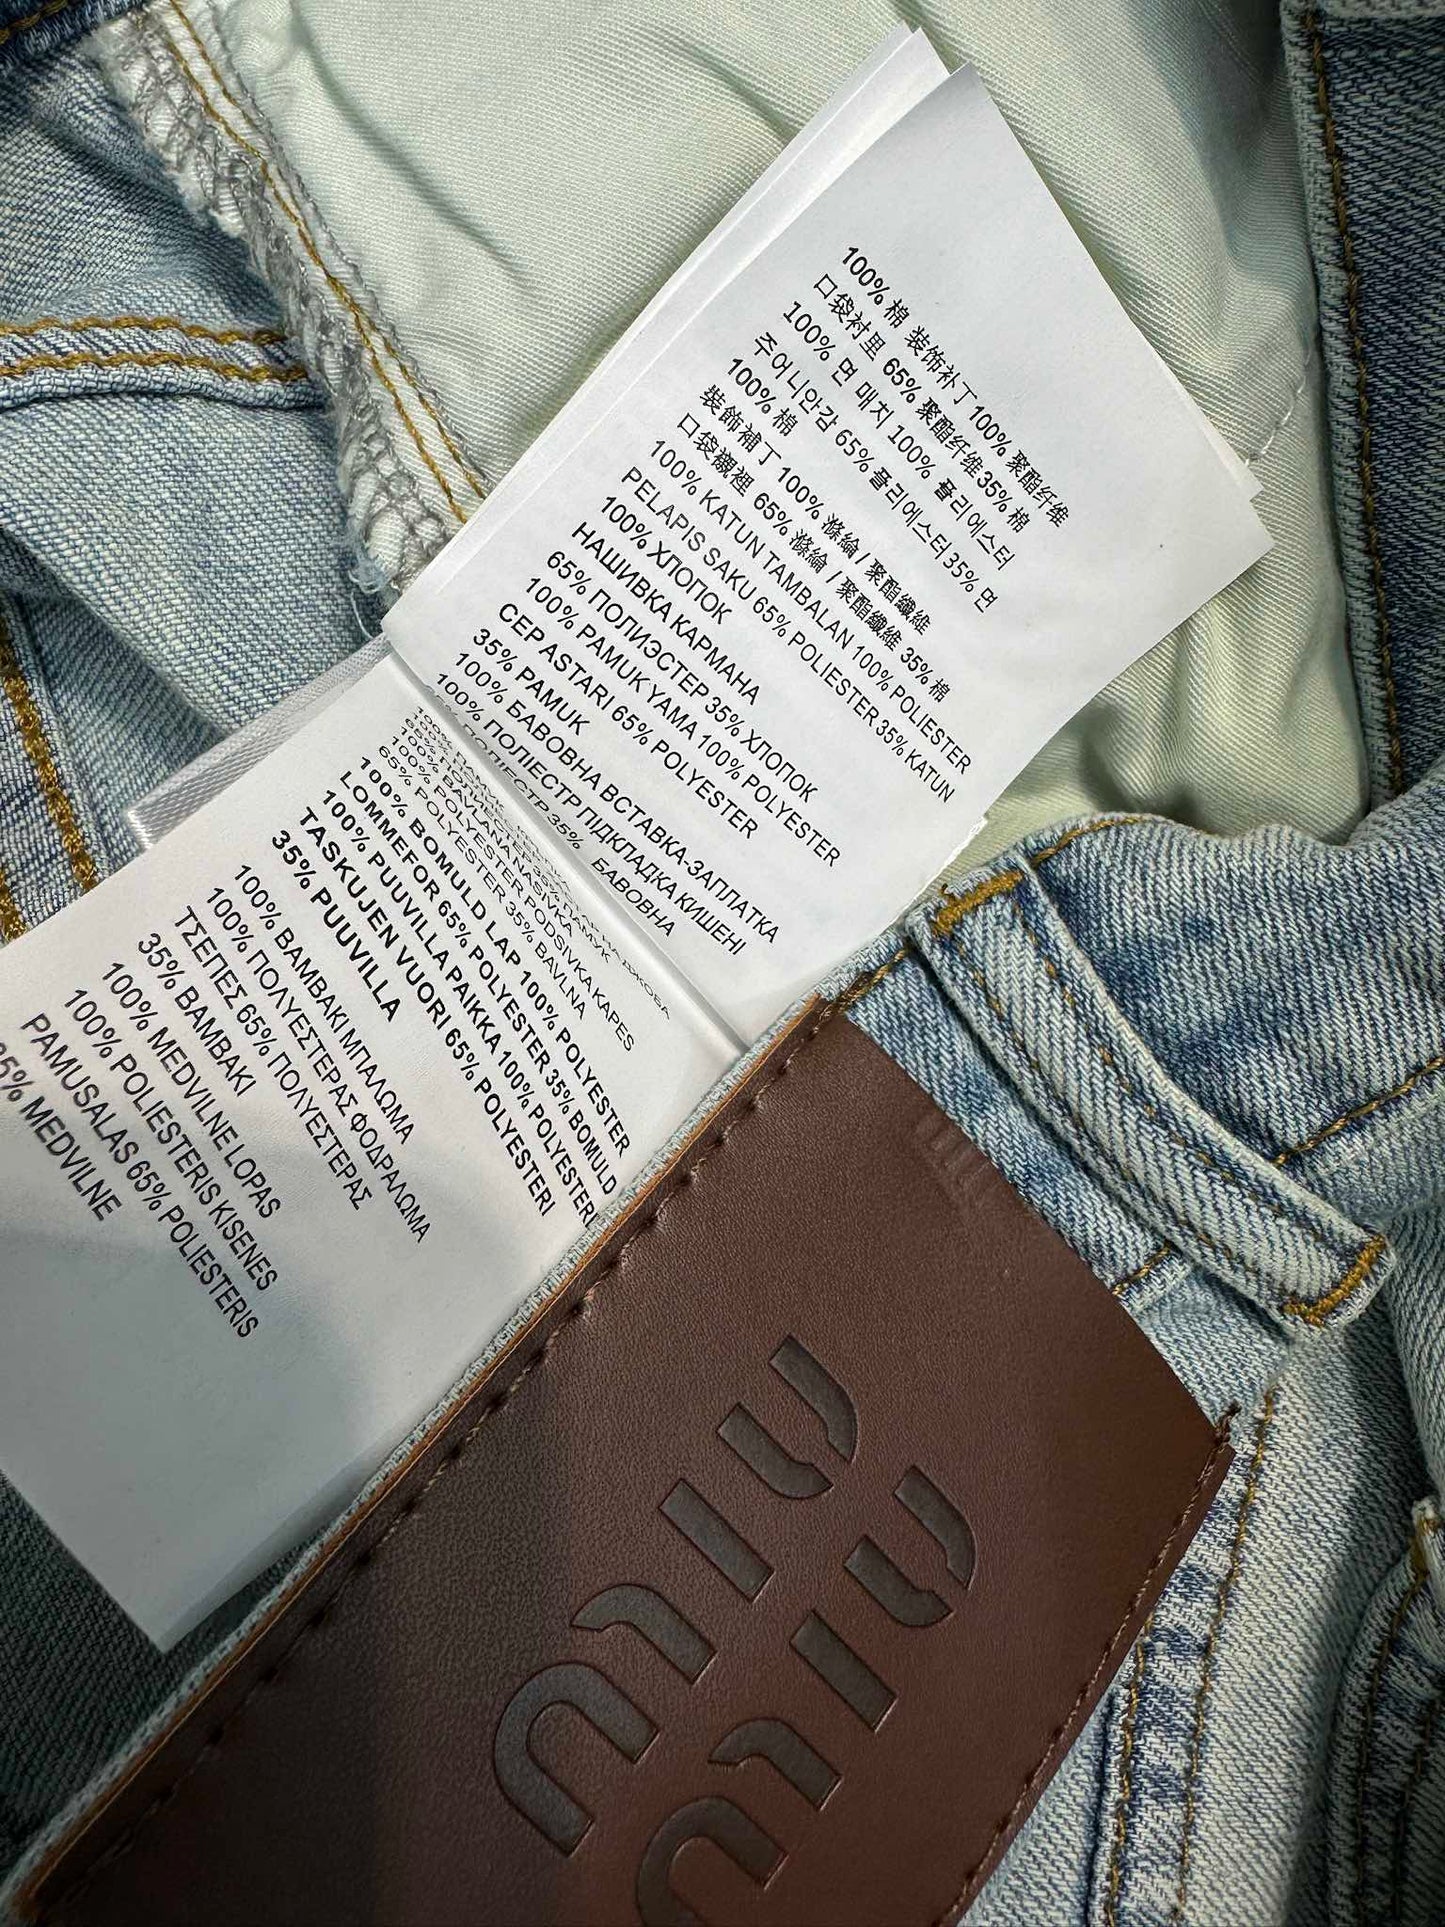 100% 棉 装饰补丁 100% 聚酯纤维
口袋衬里 65% 聚酯纤维 35% 棉
100% 면 매치 100% 폴리에스터
주어니안감 65% 폴리에스터 35% 면
100% 棉
裝飾補丁 100% 滌綸 / 聚酯纖維
口袋襯裡 65% 滌綸 / 聚酯纖維 35% 棉
100% KATUN TAMBALAN 100% POLIESTER
PELAPIS SAKU 65% POLIESTER 35% KATUN
100% ХЛОПОК
НАШИВКА КАРМАНА
65% ПОЛИЭСТЕР 35% ХЛОПОК
100% PAMUK YAMA 100% POLYESTER
CEP ASTARI 65% POLYESTER
35% PAMUK
100% БАВОВНА ВСТАВКА-ЗАПЛАТКА
100% ПОЛІЕСТР ПІДКЛАДКА КИШЕНІ
ПОЛІЕСТР 35% БАВОВНА
100% BAVLNA NASIVKA
100% POLYESTER PODSIVKA KAPES
65% POLYESTER 35% BAVLNA
100% BOMULD LAP 100% POLYESTER
LOMMEFOR 65% POLYESTER 35% BOMULD
100% PUUVILLA PAIKKA 100% POLYESTERI
TASKUJEN VUORI 65% POLYESTERI
35% PUUVILLA
100% ΒΑΜΒΑΚΙ ΜΠΑΛΩΜΑ
100% ΠΟΛΥΕΣΤΕΡΑΣ ΦΟΔΡΑΛΩΜΑ
ΤΣΕΠΕΣ 65% ΠΟΛΥΕΣΤΕΡΑΣ
35% ΒΑΜΒΑΚΙ
100% MEDVILNE LOPAS
100% POLIESTERIS KISENES
PAMUSALAS 65% POLIESTERIS
35% MEDVILNE
miu
miu